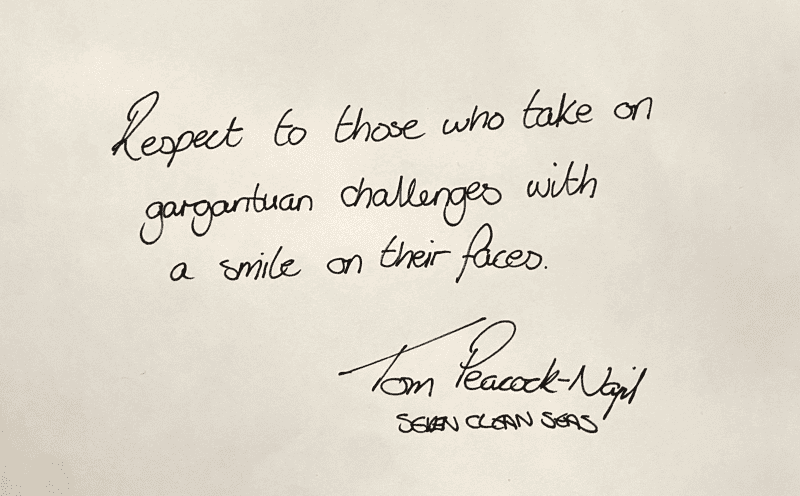 Respect to those who take on
gargantuan challenges with
a smile on their faces.
Tom Peacock-Nazil
SEVEN CLEAN SEAS